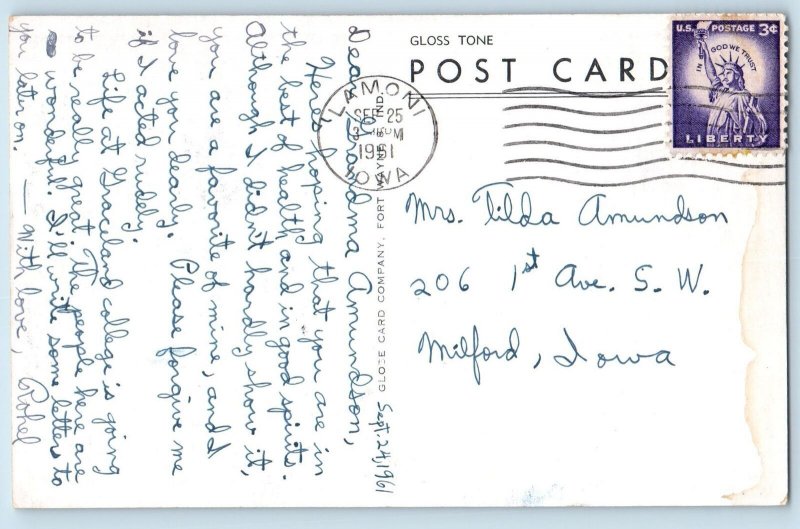 GLOSS TONE
POST CARD
U.S. POSTAGE 3¢
IN GOD WE TRUST
LIBERTY
LAMONI
SEP 25
1961
IOWA
Mrs. Tilda Amundson
206 1st Ave. S. W.
Milford, Iowa
GLOBE CARD COMPANY, FORT WAYNE, IND.
Sept. 24, 1961
Dear Grandma Amundson,
Here's hoping that you are in
the best of health and in good spirits.
Although I didn't hardly show it,
you are a favorite of mine, and I
love you dearly. Please forgive me
if I acted rudely.
Life at Graceland college is going
to be really great. The people here are
wonderful. I'll write some letters to
you later on. — With love,